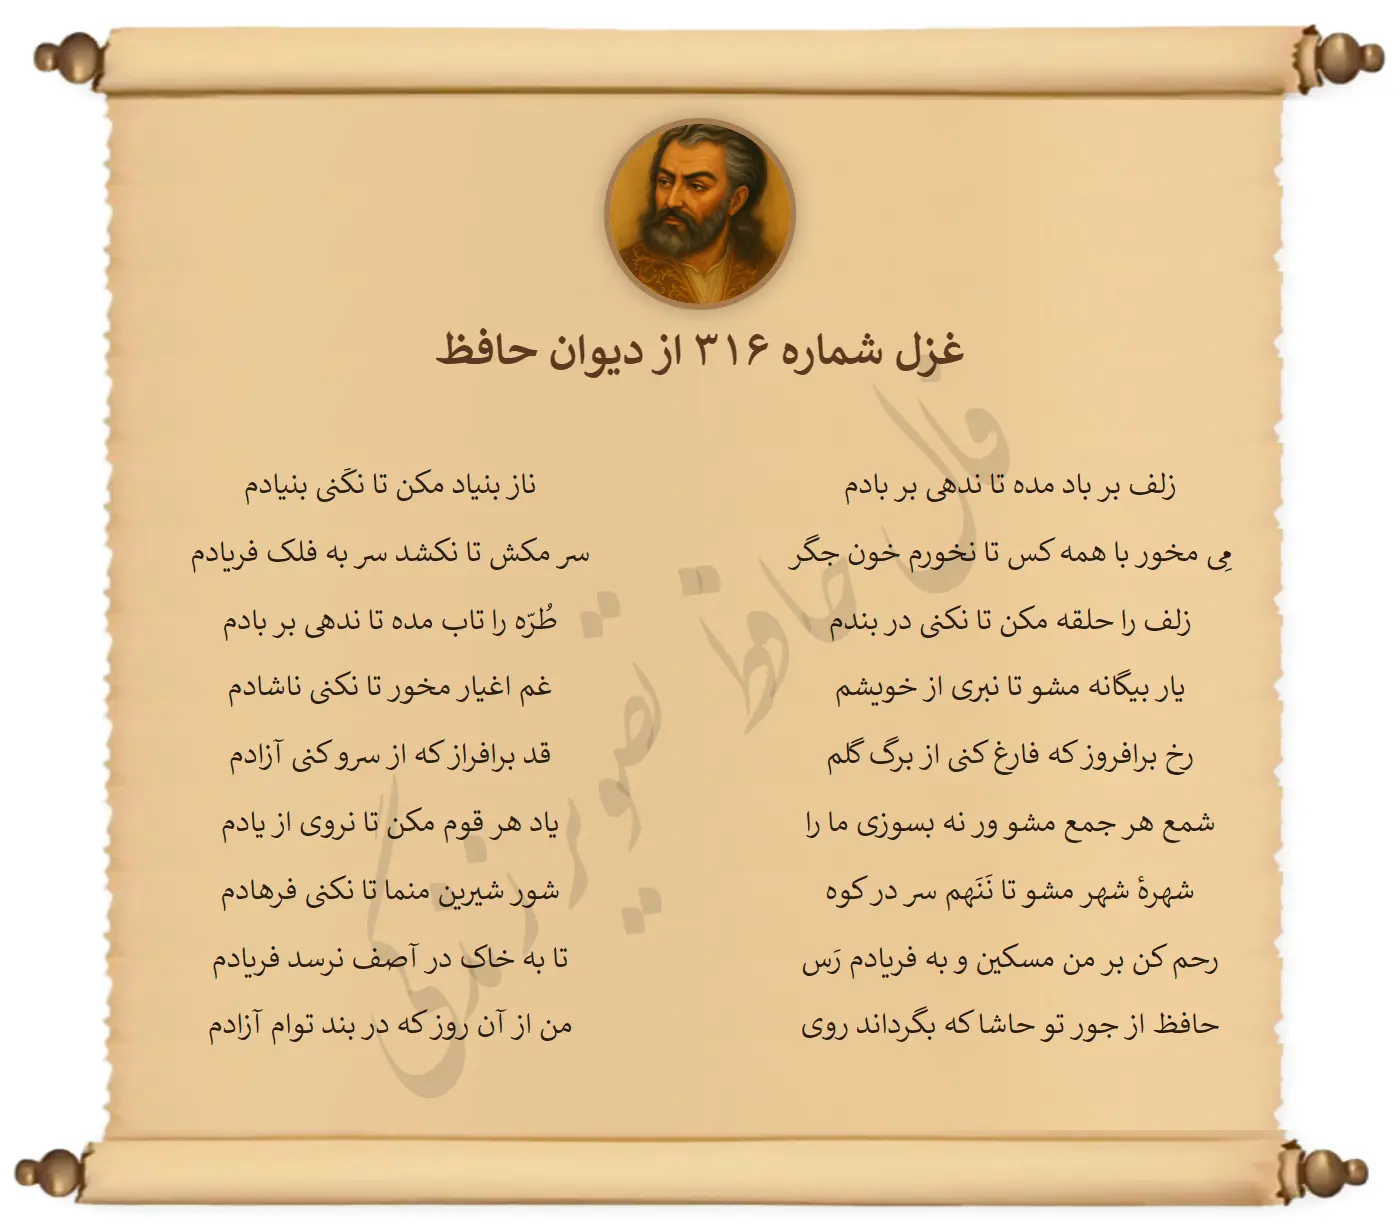 غزل شماره ۳۱۶ از دیوان حافظ
زلف بر باد مده تا ندهی بر بادم
ناز بنیاد مکن تا نکَنی بنیادم
مِی مخور با همه کس تا نخورم خون جگر
سر مکش تا نکشد سر به فلک فریادم
زلف را حلقه مکن تا نکنی در بندم
طُرّه را تاب مده تا ندهی بر بادم
یار بیگانه مشو تا نبری از خویشم
غم اغیار مخور تا نکنی ناشادم
رخ برافروز که فارغ کنی از برگ گلم
قد برافراز که از سرو کنی آزادم
شمع هر جمع مشو ور نه بسوزی ما را
یاد هر قوم مکن تا نروی از یادم
شهرهٔ شهر مشو تا نَنَهم سر در کوه
شور شیرین منما تا نکنی فرهادم
رحم کن بر من مسکین و به فریادم رَس
تا به خاک در آصف نرسد فریادم
حافظ از جور تو حاشا که بگرداند روی
من از آن روز که در بند توام آزادم
فال حافظ تصویر زندگی